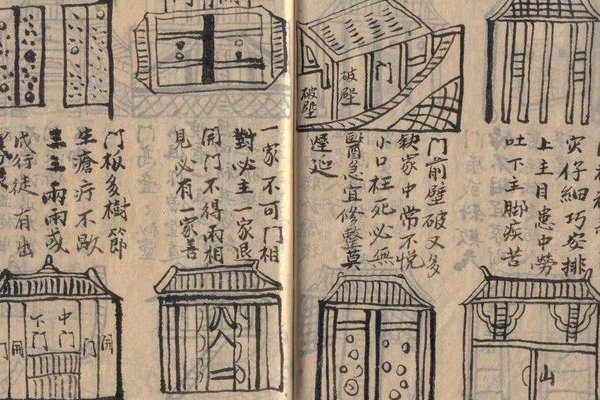 破壁
破壁
門
灾仔細巧安排
上主目患中勞
吐下主脚疾苦
門前壁破又多
缺家中常不悦
小口枉死必無
醫急宜修整莫
遲延
一家不可門相
對必主一家退
開門不得兩相
見必有一家善
門板多樹節
生瘡疔不歇
兩兩或
成行徒有出
山
開門
中門
下門
門